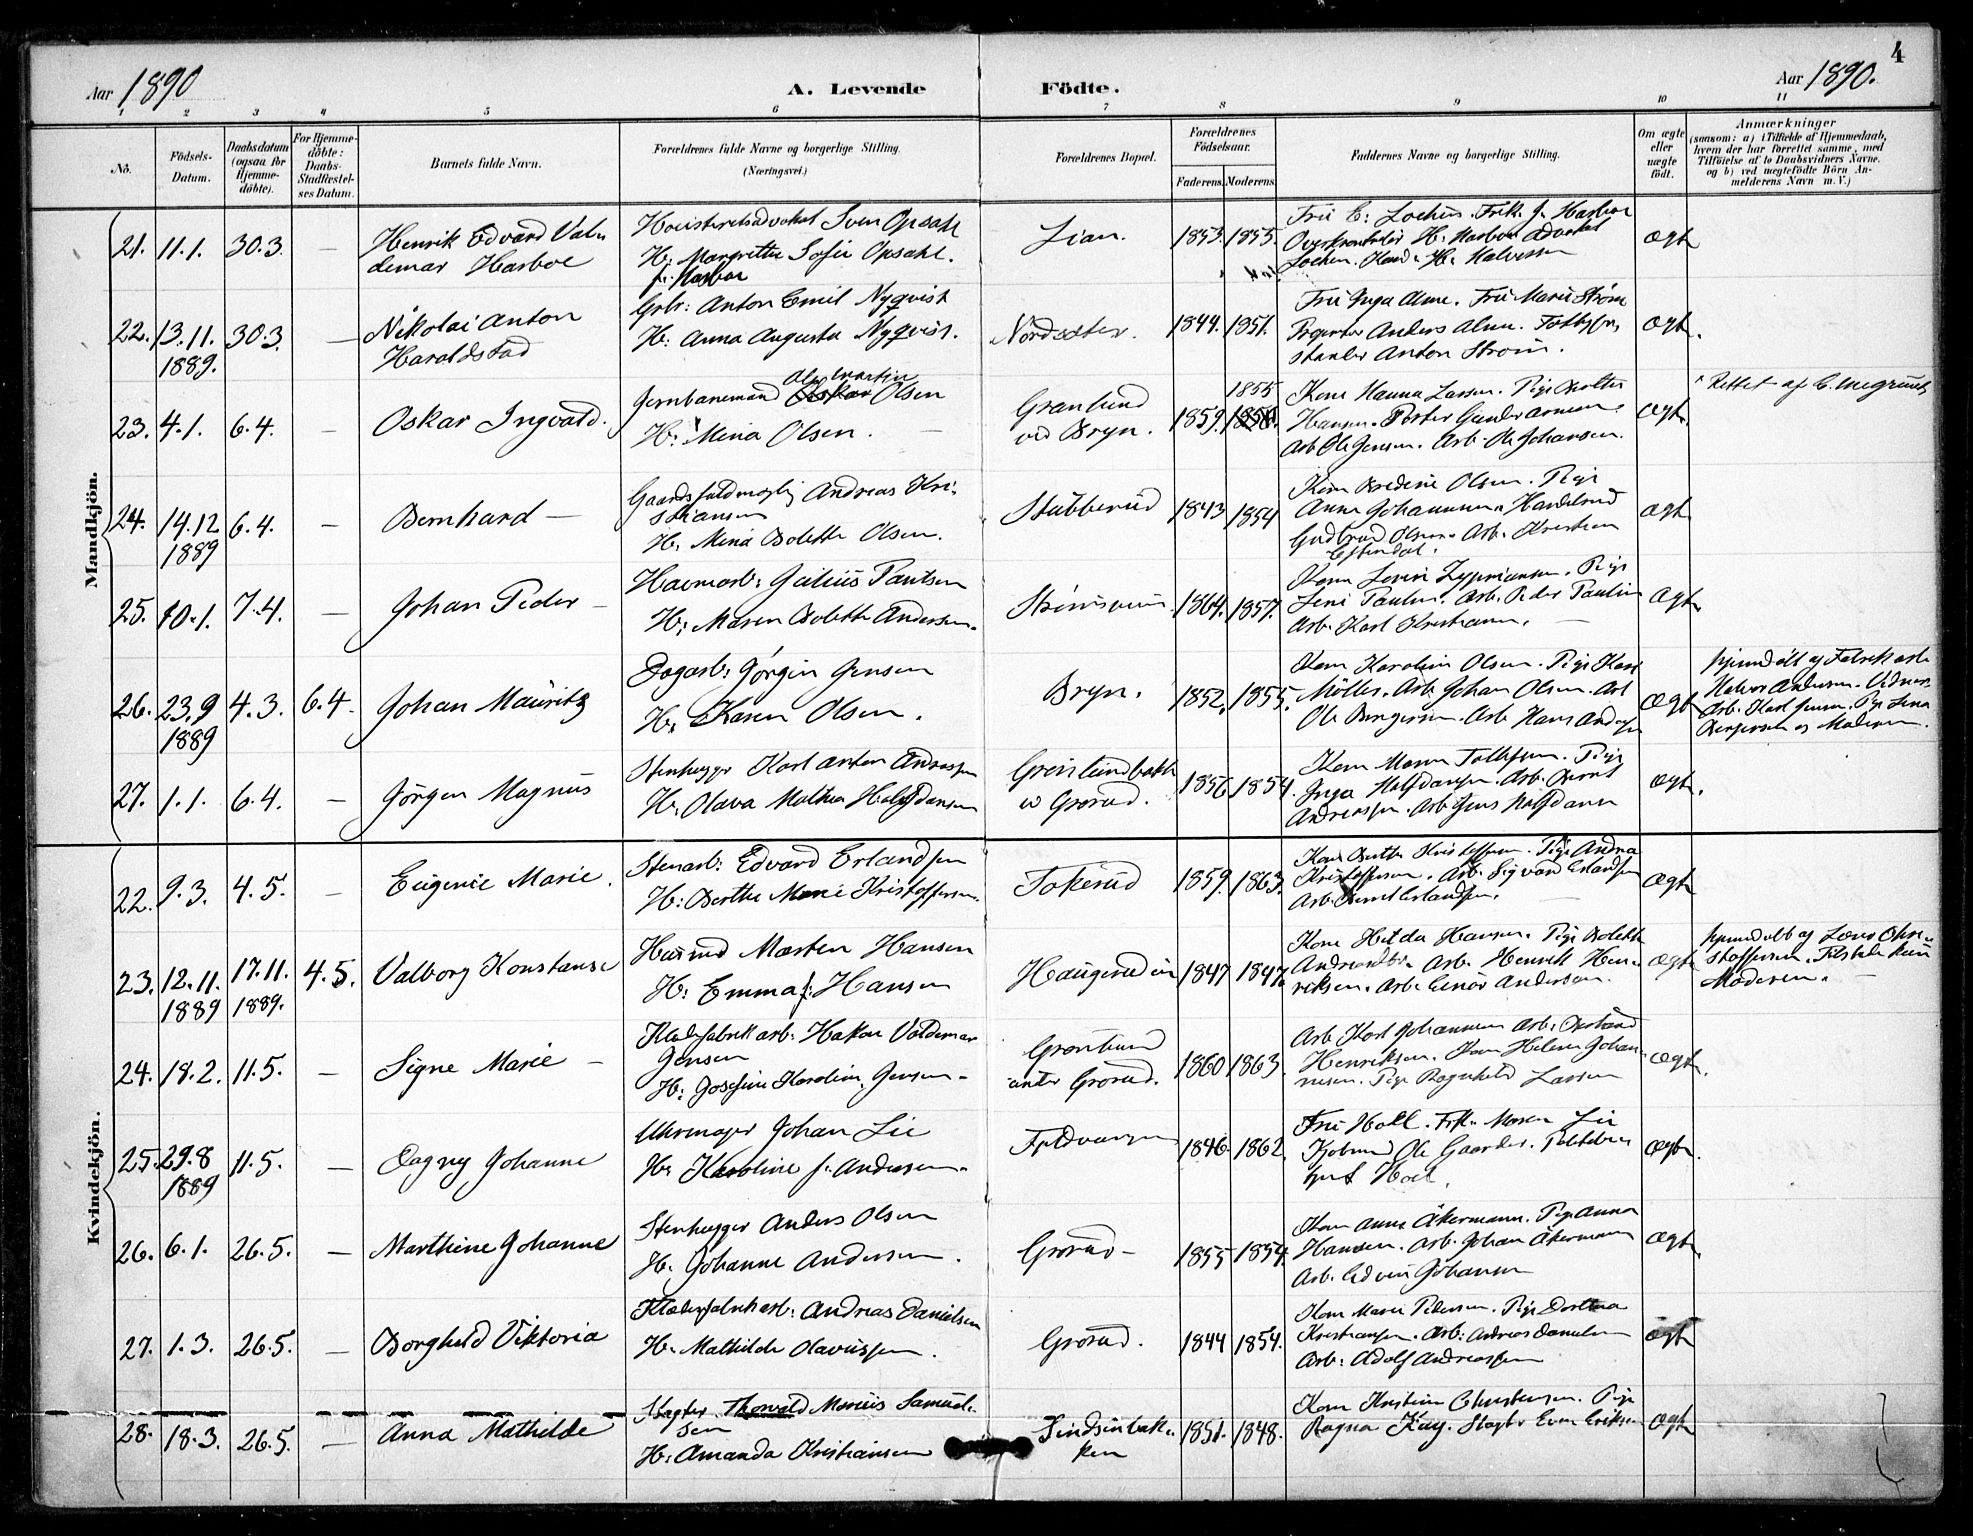 4
Aar 1890
A. Levende Födte.
Aar 1890.
1 2 3 4 5 6 7 8 9 10 11
No.
Födsels-Datum.
Daabsdatum (ogsaa for Hjemme-döbte).
For Hjemme-döbte: Daabs-Stadfæstel-ses Datum.
Barnets fulde Navn.
Forældrenes fulde Navne og borgerlige Stilling.
(Næringsvei.)
Forældrenes Bopæl.
Forældrenes Födselsaar.
Faderens. Moderens.
Faddernes Navne og borgerlige Stilling.
Om ægte eller uægte født.
Anmærkninger
(saasom: a) i Tilfælde af Hjemmedaab,
hvem der har forrettet samme, med
Tilföielse af to Daabsvidners Navne.
og b) ved uægtefödte Börn An-
melderens Navn m. V.)
Mandkjön.
21. 11.1. 30.3. —
Henrik Edvard Val-
demar Harboe
Høiesteretsadvokat Sven Opsahl
H: Margrethe Sofie Opsahl.
f. Harboe
Lian. 1853. 1855.
Fru E. Lochen. Frk. J. Harboe
H. Harboe Advokat
Lochen. H. Halvorsen
ægte
22. 13.11. 1889. 30.3. —
Nikolai Anton
Haraldstad
Grbr: Anton Emil Nyqvist
H: Anna Augusta Nyqvist.
Nordseter. 1844. 1851.
Fru Inga Alme. Fru Marie Strøm
Anders Alme.
Anton Strøm.
ægte.
23. 4.1. 6.4. —
Oskar Ingvald.
Jernbanemand Oskar Olsen
Ole Martin
H: Mina Olsen. —
Grønlund
ved Bryn. 1859. 1858.
1855
Kone Hanna Larsen. Pige
Hansen.
Arb. Ole Jensen. Arb. Ole Johansen.
ægte
Rettet af
24. 14.12 1889 6.4. —
Bernhard —
Gaardsfuldmægtig Andreas Kri-
stiansen
H: Mina Bolette Olsen.
Stubberud 1843 1854
Kone Olsen. Pige
Anna Johannesen.
Gudbrand Olsen. Arb. Kristian
ægte
25. 10.1. 7.4. —
Johan Peder —
Havnearb: Julius Paulsen
H: Maren Bolette Andersen.
1864. 1857.
Kone Zypriansen. Pige
Lene Paulsen. Arb. Peder Paulsen
Arb. Karl Kristiansen. —
ægte
26. 23.9 1889 4.3. 6.4.
Johan Mauritz
Dagarb: Jørgen Jensen
H: Karen Olsen.
Bryn. 1852. 1855.
Kone Karoline Olsen. Pige
Möller. Arb. Johan Olsen. Arb
Ole Bengersen. Arb Hans Andersen
ægte
hjemdöbt af Fabrikarb
Halvor Andersen. Vidner
Arb. Karl Jensen. Pige Lena
Bengersen og Moderen.
27. 1.1. 6.4. —
Jörgen Magnus
Stenhugger Karl Anton Andreassen
H: Olava Mathea Halfdansen
Grønlundbakke
v Grorud. 1856. 1854.
Kone Maren Tollefsen. Pige
Inga Halfdansen. Arb. Bernt
Andreassen. Arb Jens Halfdansen
ægte.
Kvindekjön.
22. 9.3. 4.5. —
Eugenie Marie.
Stenarb: Edvard Erlandsen
H: Berthe Marie Kristoffersen.
Tokerud 1859. 1863.
Kone Berthe Kristoffersen. Pige Andrea
Kristoffersen. Arb. Sigvard Erlandsen
Arb. Bernt Erlandsen. —
ægte
23. 12.11. 1889 17.11. 1889. 4.5.
Valborg Konstanse
Husmd Morten Hansen
H: Emma f: Hansen
Haugerud 1847 1847.
Kone Hilda Hansen. Pige Bolette
Arb. Henrik Hen-
riksen. Arb. Einar Andersen.
ægte
hjemdöbt af Lars Chri-
stoffersen. Tilstede kun
Moderen. —
24. 18.2. 11.5. —
Signe Marie —
Klædefabrikarb: Hakon Valdemar
Jensen
H: Josefine Karoline Jensen —
Grønlund
under Grorud. 1860 1863.
Arb. Karl Johannesen Arb:
Henriksen. Kone Helene Johan-
nesen. Pige Ragnhild Larsen
ægte.
25. 29.8 1889 11.5. —
Dagny Johanne
Uhrmager Johan Lie
H: Karoline f. Andersen.
1846. 1862.
Fru Holl. Frk. Maren Lie
Ole Gaarder.
ægte.
26. 6.1. 26.5. —
Marthine Johanne
Stenhugger Anders Olsen
H. Johanne Andersen.
Grorud — 1855 1854.
Kone Anna Åkermann. Pige Anna
Hansen. Arb. Johan Åkermann
Arb. Edvin Johansen
ægte.
27. 1.3. 26.5. —
Borghild Viktoria
Klædesfabrikarb: Andreas Danielsen
H. Mathilde Olavussen.
Grorud. 1844 1854.
Kone Maren Pedersen. Pige Dorthea
Kristiansen. Arb: Andreas Danielsen
Arb: Adolf Andreassen
ægte
28. 18.3. 26.5. —
Anna Mathilde
Slagter. Thorvald Marius Samuel-
sen
H: Amanda Kristiansen
Sindsenbak-
ken 1851. 1848.
Kone Kristine Christensen. Pige
Ragna Kay. Slagter Even Eriksen
ægte